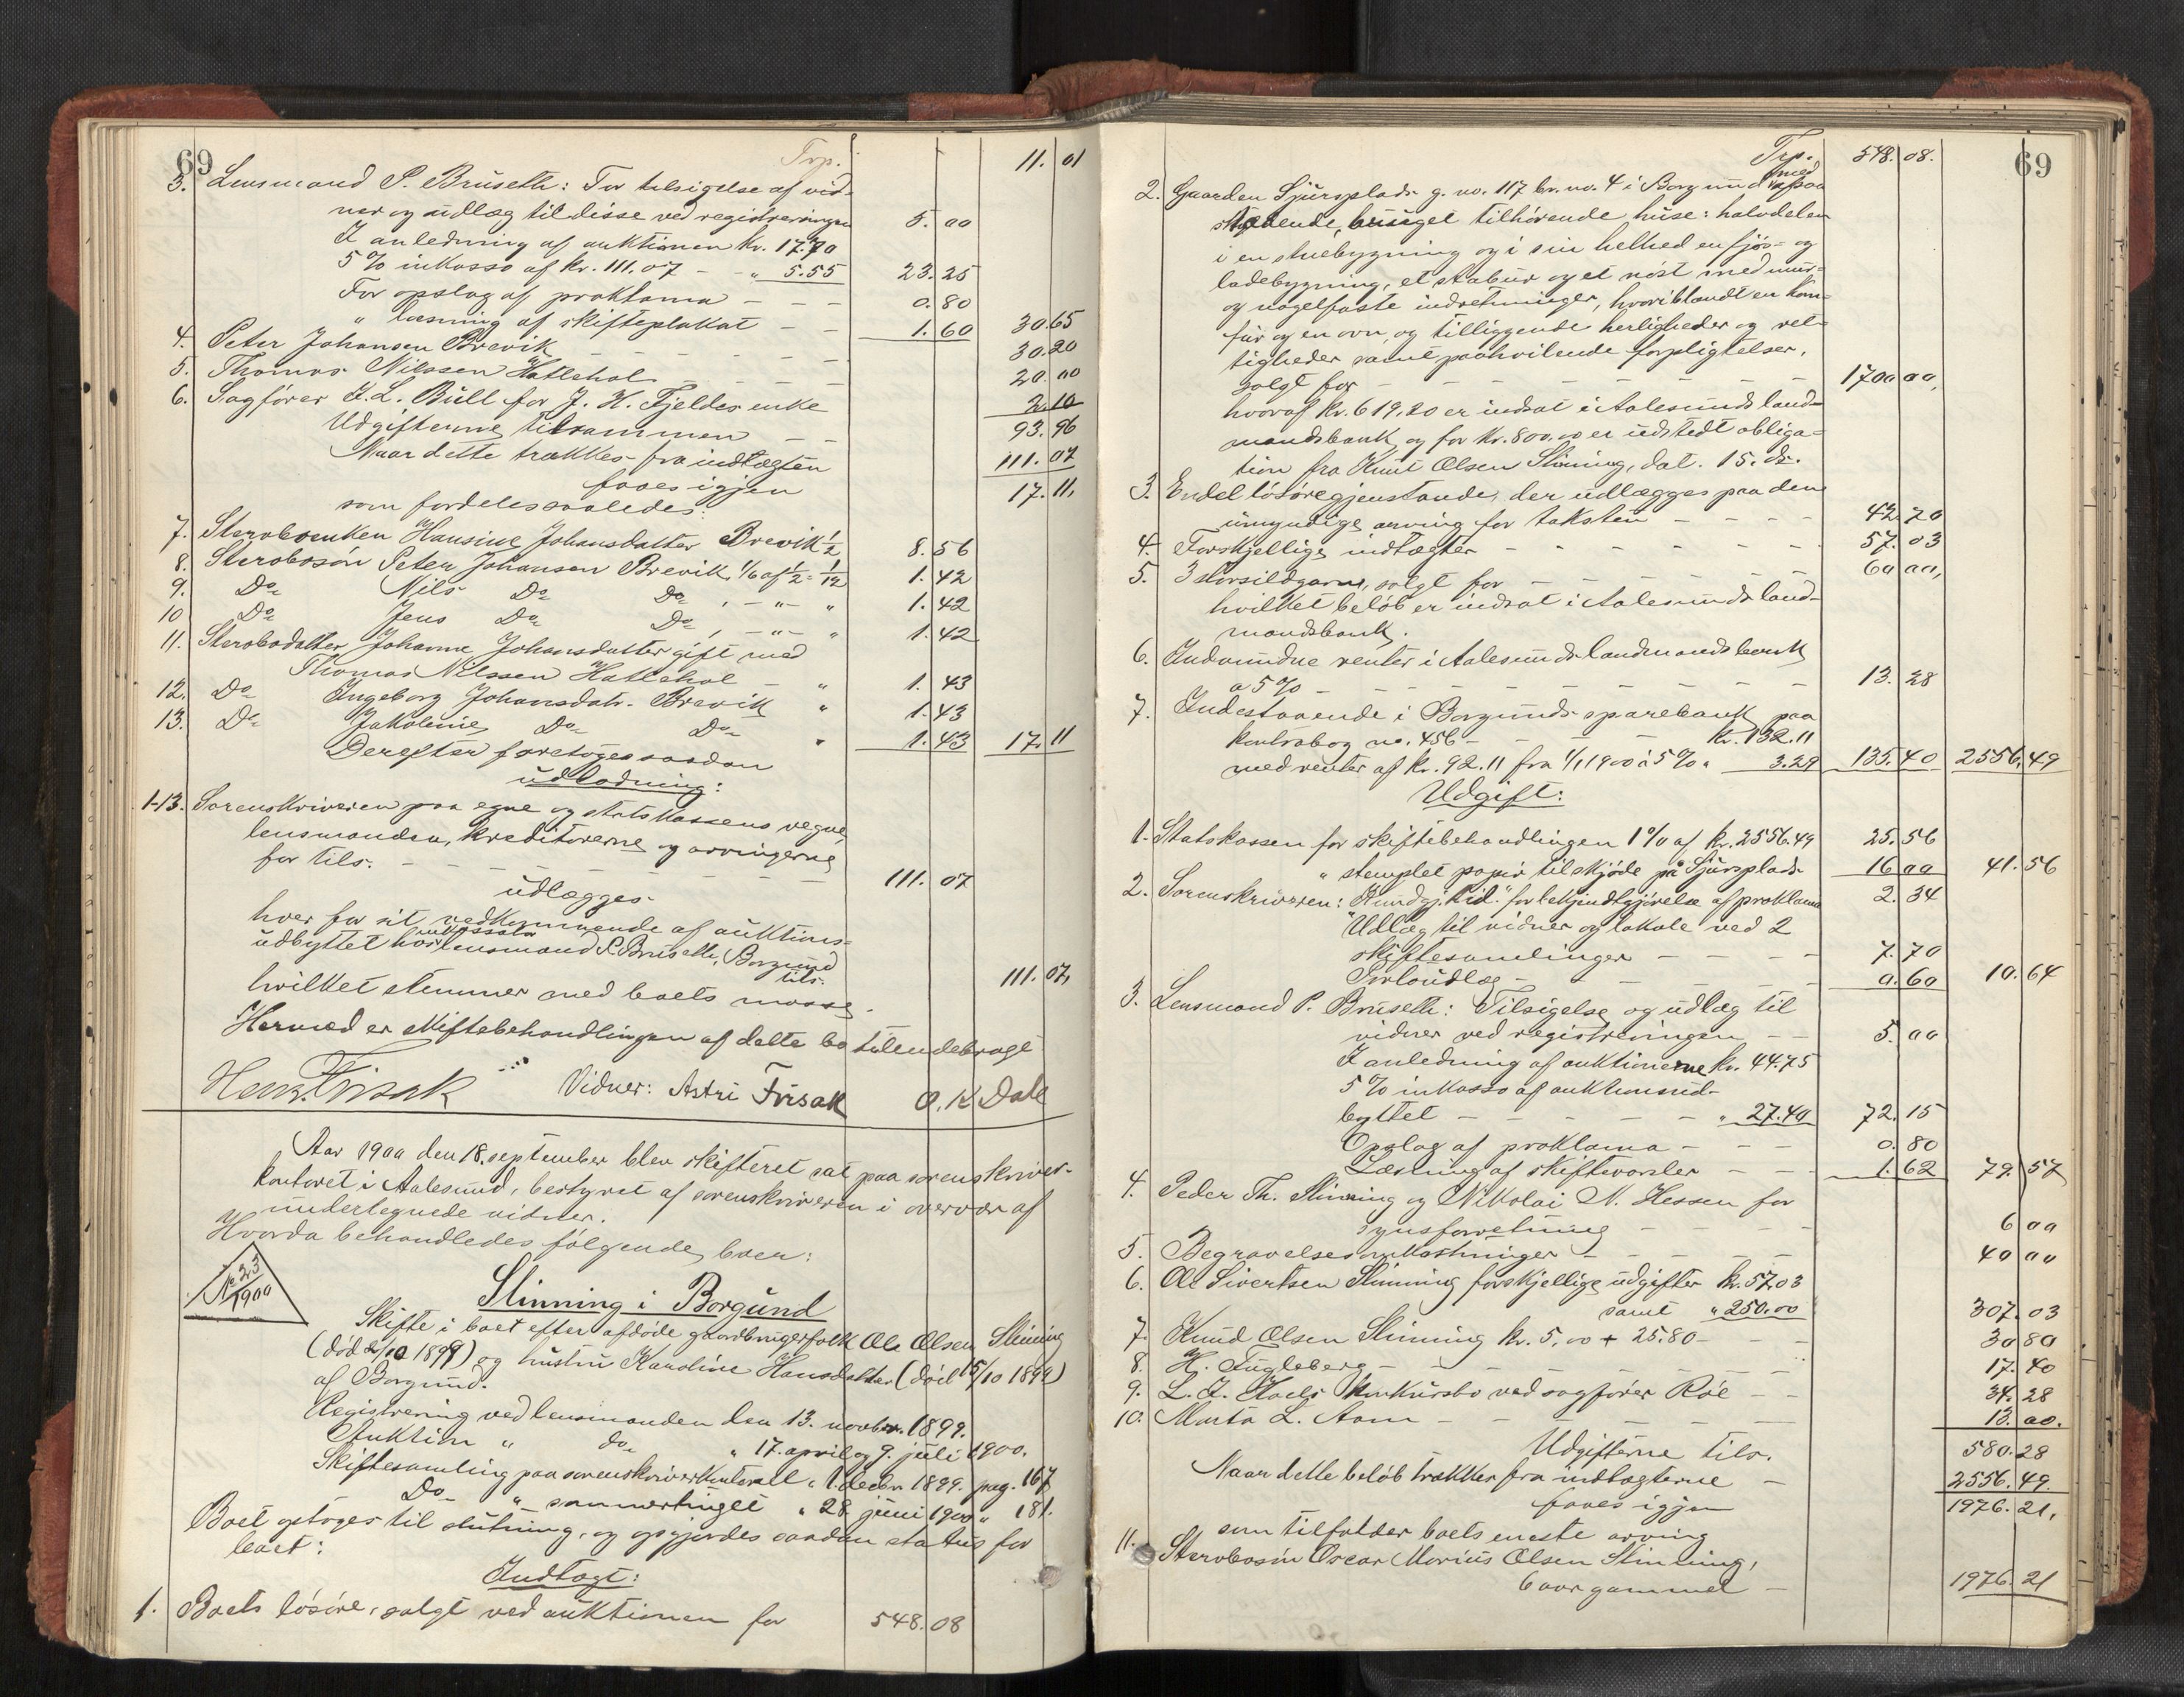 69
Trp. 11. 01
3. Lensmand P. Brüseth: For tilsigelse af vid-
ner og udlæg til disse ved registreringen 5. 00
I anledning af auktionen kr. 17.70
5 % inkasso af kr. 111.07 - - " 5.55 23. 25
For opslag af proklama - - - 0. 80
" læsning af skifteplakat - - 1. 60 30.65
4. Peter Johansen Brevik - - - - - - 30.20
5. Thomas Nilssen Hatlehol - - - - 20.00
6. Sagfører I. L. Büll for J. H. Fjeldes enke 2.10
Udgifterne tilsammen - - 93.96
Naar dette trækkes fra indtægten 111.07
faaes igjen 17.11,
som fordeles saaledes:
7. Sterboenken Hansine Johansdatter Brevik 1/2 8. 56
8. Sterbosøn Peter Johansen Brevik, 1/6 af 1/2 = 1/12 1. 42
9. Do Nils Do Do , - " - " 1. 42
10 Do Jens Do Do , - " - " 1. 42
11. Sterbodatter Johanne Johansdatter gift med
Thomas Nilssen Hatlehol - " 1. 43
12. Do Ingeborg Johansdatr. Brevik " 1. 43
13. Do Jakoline Do Do " 1. 43 17. 11
Derefter foretoges saadan
udlodning:
1-13. Sorenskriveren paa egne og statskassens vegne,
lensmanden, kreditorerne og arvingerne
for tils. - - - - - - - - 111. 07
udlægges
hver for sit vedkommende af auktions-
udbyttet hos inkassator lensmand P. Brüseth, Borgund
tils. 111. 07,
hvilket stemmer med boets masse.
Hermed er skiftebehandlingen af dette bo tilendebragt
Hans Firsak Vidner: Astri Firsak O. K Dale
Aar 1900 den 18. september blev skifteret sat paa sorenskriver-
kontoret i Aalesund, bestyret af sorenskriveren i overvær af
undertegnede vidner.
Hvorda behandledes følgende boer:
No 23/1900
Slinning i Borgund
Skifte i boet efter afdøde gaardbrugerfolk Ole Olsen Slinning
(død /10 1899) og hustru Karoline Hansdatter (død 15/10 1899)
af Borgund.
Registrering ved lensmanden den 13. novbr. 1899.
Auktion " do " 17. april og 9. juli 1900.
Skiftesamling paa sorenskriverkontoret " 1. decbr 1899. pag. 167
Do " sommertinget " 28. juni 1900 " 181.
Boet optoges til slutning, og opgjordes saadan status for
boet:
Indtægt:
1. Boets løsøre, solgt ved auktionen for 548. 08
69
Trp. 548. 08.
2. Gaarden Sjürsplads g. no. 117 br. no. 4 i Borgund med paa
staaende, brüget tilhørende hüse: halvdelen
i en stuebygning og i sin helhed en fjøs- og
ladebygning, et stabür og et nøst med mur-
og nagelfaste indretninger, hvoriblandt en kom-
für og en ovn, og tilliggende herligheder og ret-
tigheder samt paahvilende forpligtelser,
solgt for - - - - - - - - 1700 00,
hvoraf kr. 619.20 er indsat i Aalesunds land-
mandsbank og for kr. 800.00 er udstedt obliga-
tion fra Knut Olsen Slinning, dat. 15. ds.
3. Endel løsøregjenstande, der udlægges paa den
umyndige arving for taksten - - - - 42. 70
4. Forskjellige indtægter - - - - - - 57. 03
5. 3 storsildgarn, solgt for - - - - - 60 00,
hvilket beløb er indsat i Aalesunds land-
mandsbank.
6. Indvundne renter i Aalesunds landmandsbank
a 5 % - - - - - - - - 13. 28
7. Indestaaende i Borgunds sparebank paa
kontrabog no. 456 - - - - kr. 132.11
med renter af kr. 92.11 fra 1/1 1900 à 5 % " 3.29 135.40 2556.49
Udgift:
1. Statskassen for skiftebehandlingen 1 % af kr. 2556.49 25. 56
" stemplet papir til skjøde på Sjürsplads 16 00 41. 56
2. Sorenskriveren: "Kundgj. tid." for bekjendtgjørelse af proklama 2. 34
Udlæg til vidner og lokale ved 2
skiftesamlinger - - - - 7. 70
Portoudlæg - - - - - 0. 60 10. 64
3. Lensmand P. Brüseth: Tilsigelse og udlæg til
vidner ved registreringen - - 5. 00
I anledning af auktionerne kr. 44.75
5 % inkasso af auktionsud-
byttet - - - - - " 27.40 72. 15
Opslag af proklama - - - 0. 80
Læsning af skiftevarsler - - 1. 62 79. 57
4. Peder Th. Slinning og Nikolai N. Hessen for
synsforretning - - - - 6 00
5. Begravelsesomkostninger - - - - - 40 00
6. Ole Sivertsen Slinning forskjellige udgifter kr. 57.03
samt " 250.00 307. 03
7. Knud Olsen Slinning kr. 5.00 + 25.80 - - 30 80
8. H. Fugleberg - - - - - 17. 40
9. L. J. Kaels konkursbo ved sagfører Röe - - 34. 28
10. Marta L. Aam - - - - - - 13. 00.
Udgifterne tils. 580. 28
Naar dette beløb trækkes fra indtægterne - 2556. 49.
faaes igjen 1976. 21,
som tilfalder boets eneste arving
11. Sterbosøn Oscar Marius Olsen Slinning,
6 aar gammel - 1976. 21